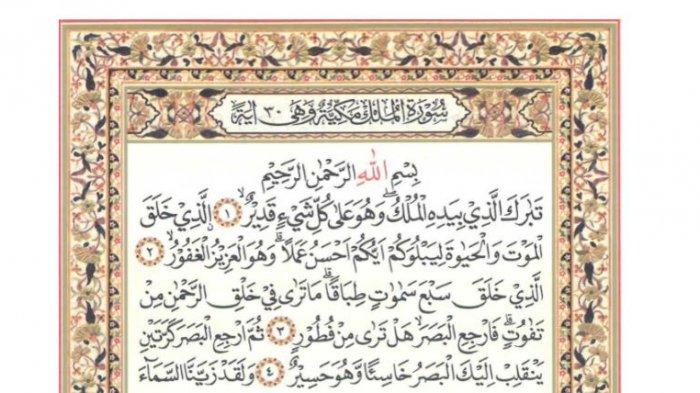 سُوْرَةُ الْمُلْكِ مَكِّيَّةٌ وَّهِيَ ٣٠ اٰيَةً
بِسْمِ اللّٰهِ الرَّحْمٰنِ الرَّحِيْمِ
تَبٰرَكَ الَّذِيْ بِيَدِهِ الْمُلْكُۖ وَهُوَ عَلٰى كُلِّ شَيْءٍ قَدِيْرٌۙ ١ اۨلَّذِيْ خَلَقَ
الْمَوْتَ وَالْحَيٰوةَ لِيَبْلُوَكُمْ اَيُّكُمْ اَحْسَنُ عَمَلًاۗ وَهُوَ الْعَزِيْزُ الْغَفُوْرُۙ ٢
الَّذِيْ خَلَقَ سَبْعَ سَمٰوٰتٍ طِبَاقًاۗ مَا تَرٰى فِيْ خَلْقِ الرَّحْمٰنِ مِنْ
تَفٰوُتٍۗ فَارْجِعِ الْبَصَرَۙ هَلْ تَرٰى مِنْ فُطُوْرٍ ٣ ثُمَّ ارْجِعِ الْبَصَرَ كَرَّتَيْنِ
يَنْقَلِبْ اِلَيْكَ الْبَصَرُ خَاسِئًا وَّهُوَ حَسِيْرٌ ٤ وَلَقَدْ زَيَّنَّا السَّمَاۤءَ